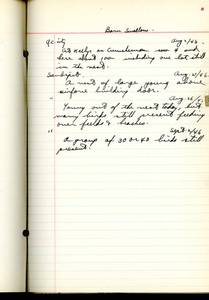 Barn Swallow
Aug 2/46
At Kelly's on
there about 100 including one lot still
in the nest.
Sandspit Aug 21/46.
A nest of large young above
airforce building door.
" Aug 26/46
Young out of the nest today, but
many birds still present feeding
over fields & beaches.
" Sept 4/46
A group of 30 or 40 birds still
present.